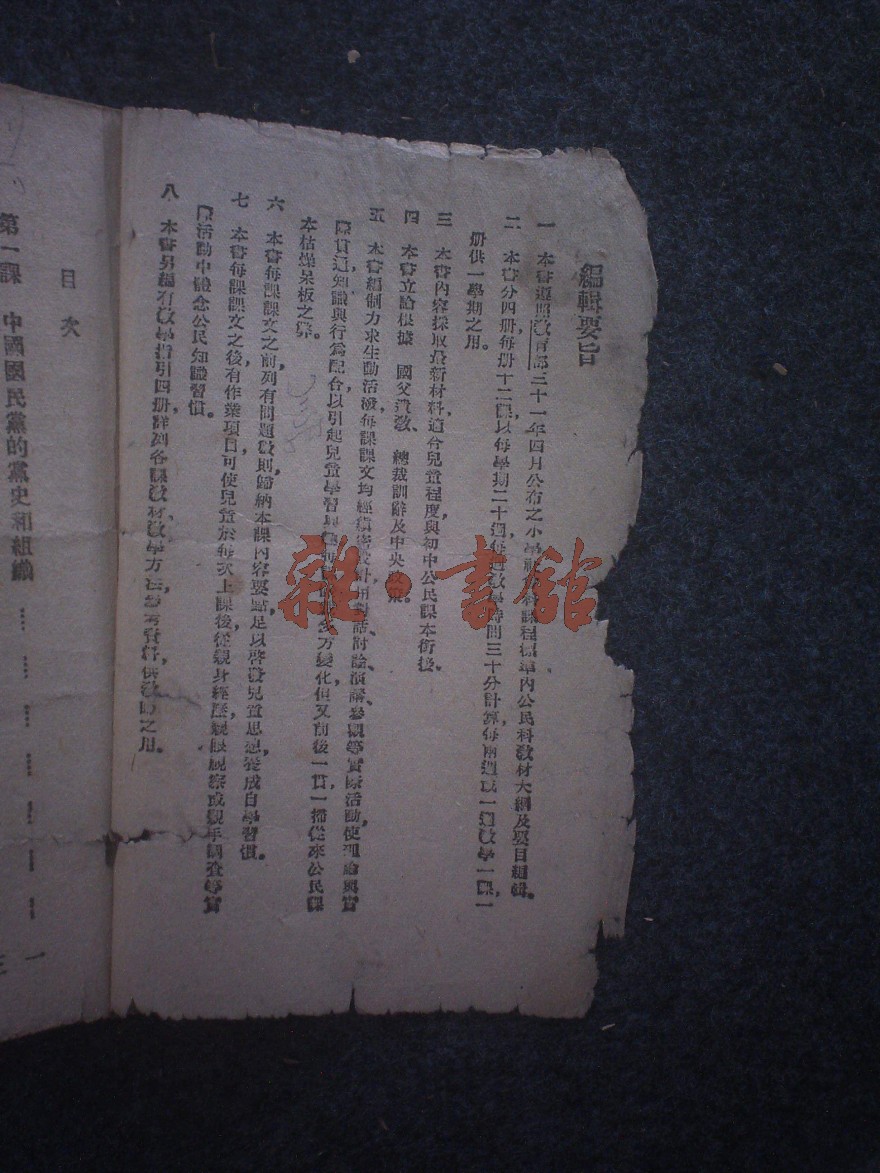 編輯要旨
一 本書遵照教育部三十一年四月公布之小學 科課程標準內公民科教材大綱及要目編輯。
二 本書分四册每册十二課以每學期二十週每週教學時間三十分計算每兩週或一週教學一課,一
册供一學期之用。
三 本書內容採取最新材料適合兒童程度與初中公民課本銜接。
四 本書立論根據 國父遺教、 總裁訓辭及中央
五 本書編制力求生動活潑每課課文均經 設計用對話、討論、演講、參觀等實際活動,使理論與實
際貫通,知識與行爲配合以引起兒童學習興趣 多方變化但又前後一貫,一掃從來公民課
本枯燥呆板之弊。
六 本書每課課文之前列有問題數則歸納本課內容要點足以啓發兒童思想養成自學習慣。
七 本書每課課文之後有作業項目可使兒童於每次上課後從親身經歷親眼觀察或親手調查等實
際活動中體念公民知識習慣。
八 本書另編有教學指引四册詳列各課教材、教學方法 供教師之用。
目次
第一課 中國國民黨的黨史和組織 …… 一
三
雜·書館